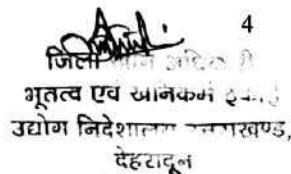 4
जिला खान अधिकारी
भूतत्व एवं खनिकर्म इकाई
उद्योग निदेशालय उत्तराखण्ड,
देहरादून